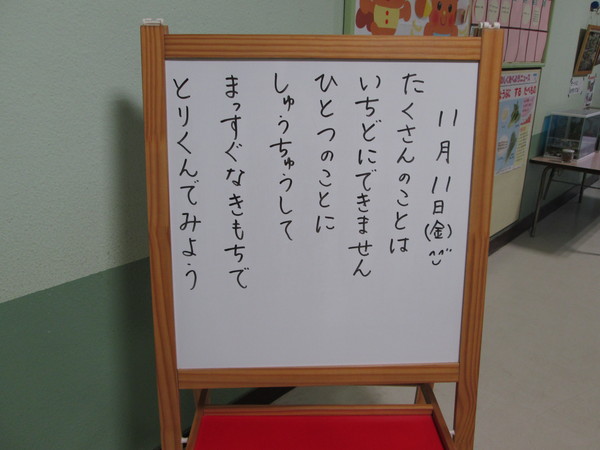 11月11日(金)
たくさんのことは
いちどにできません
ひとつのことに
しゅうちゅうして
まっすぐなきもちで
とりくんでみよう